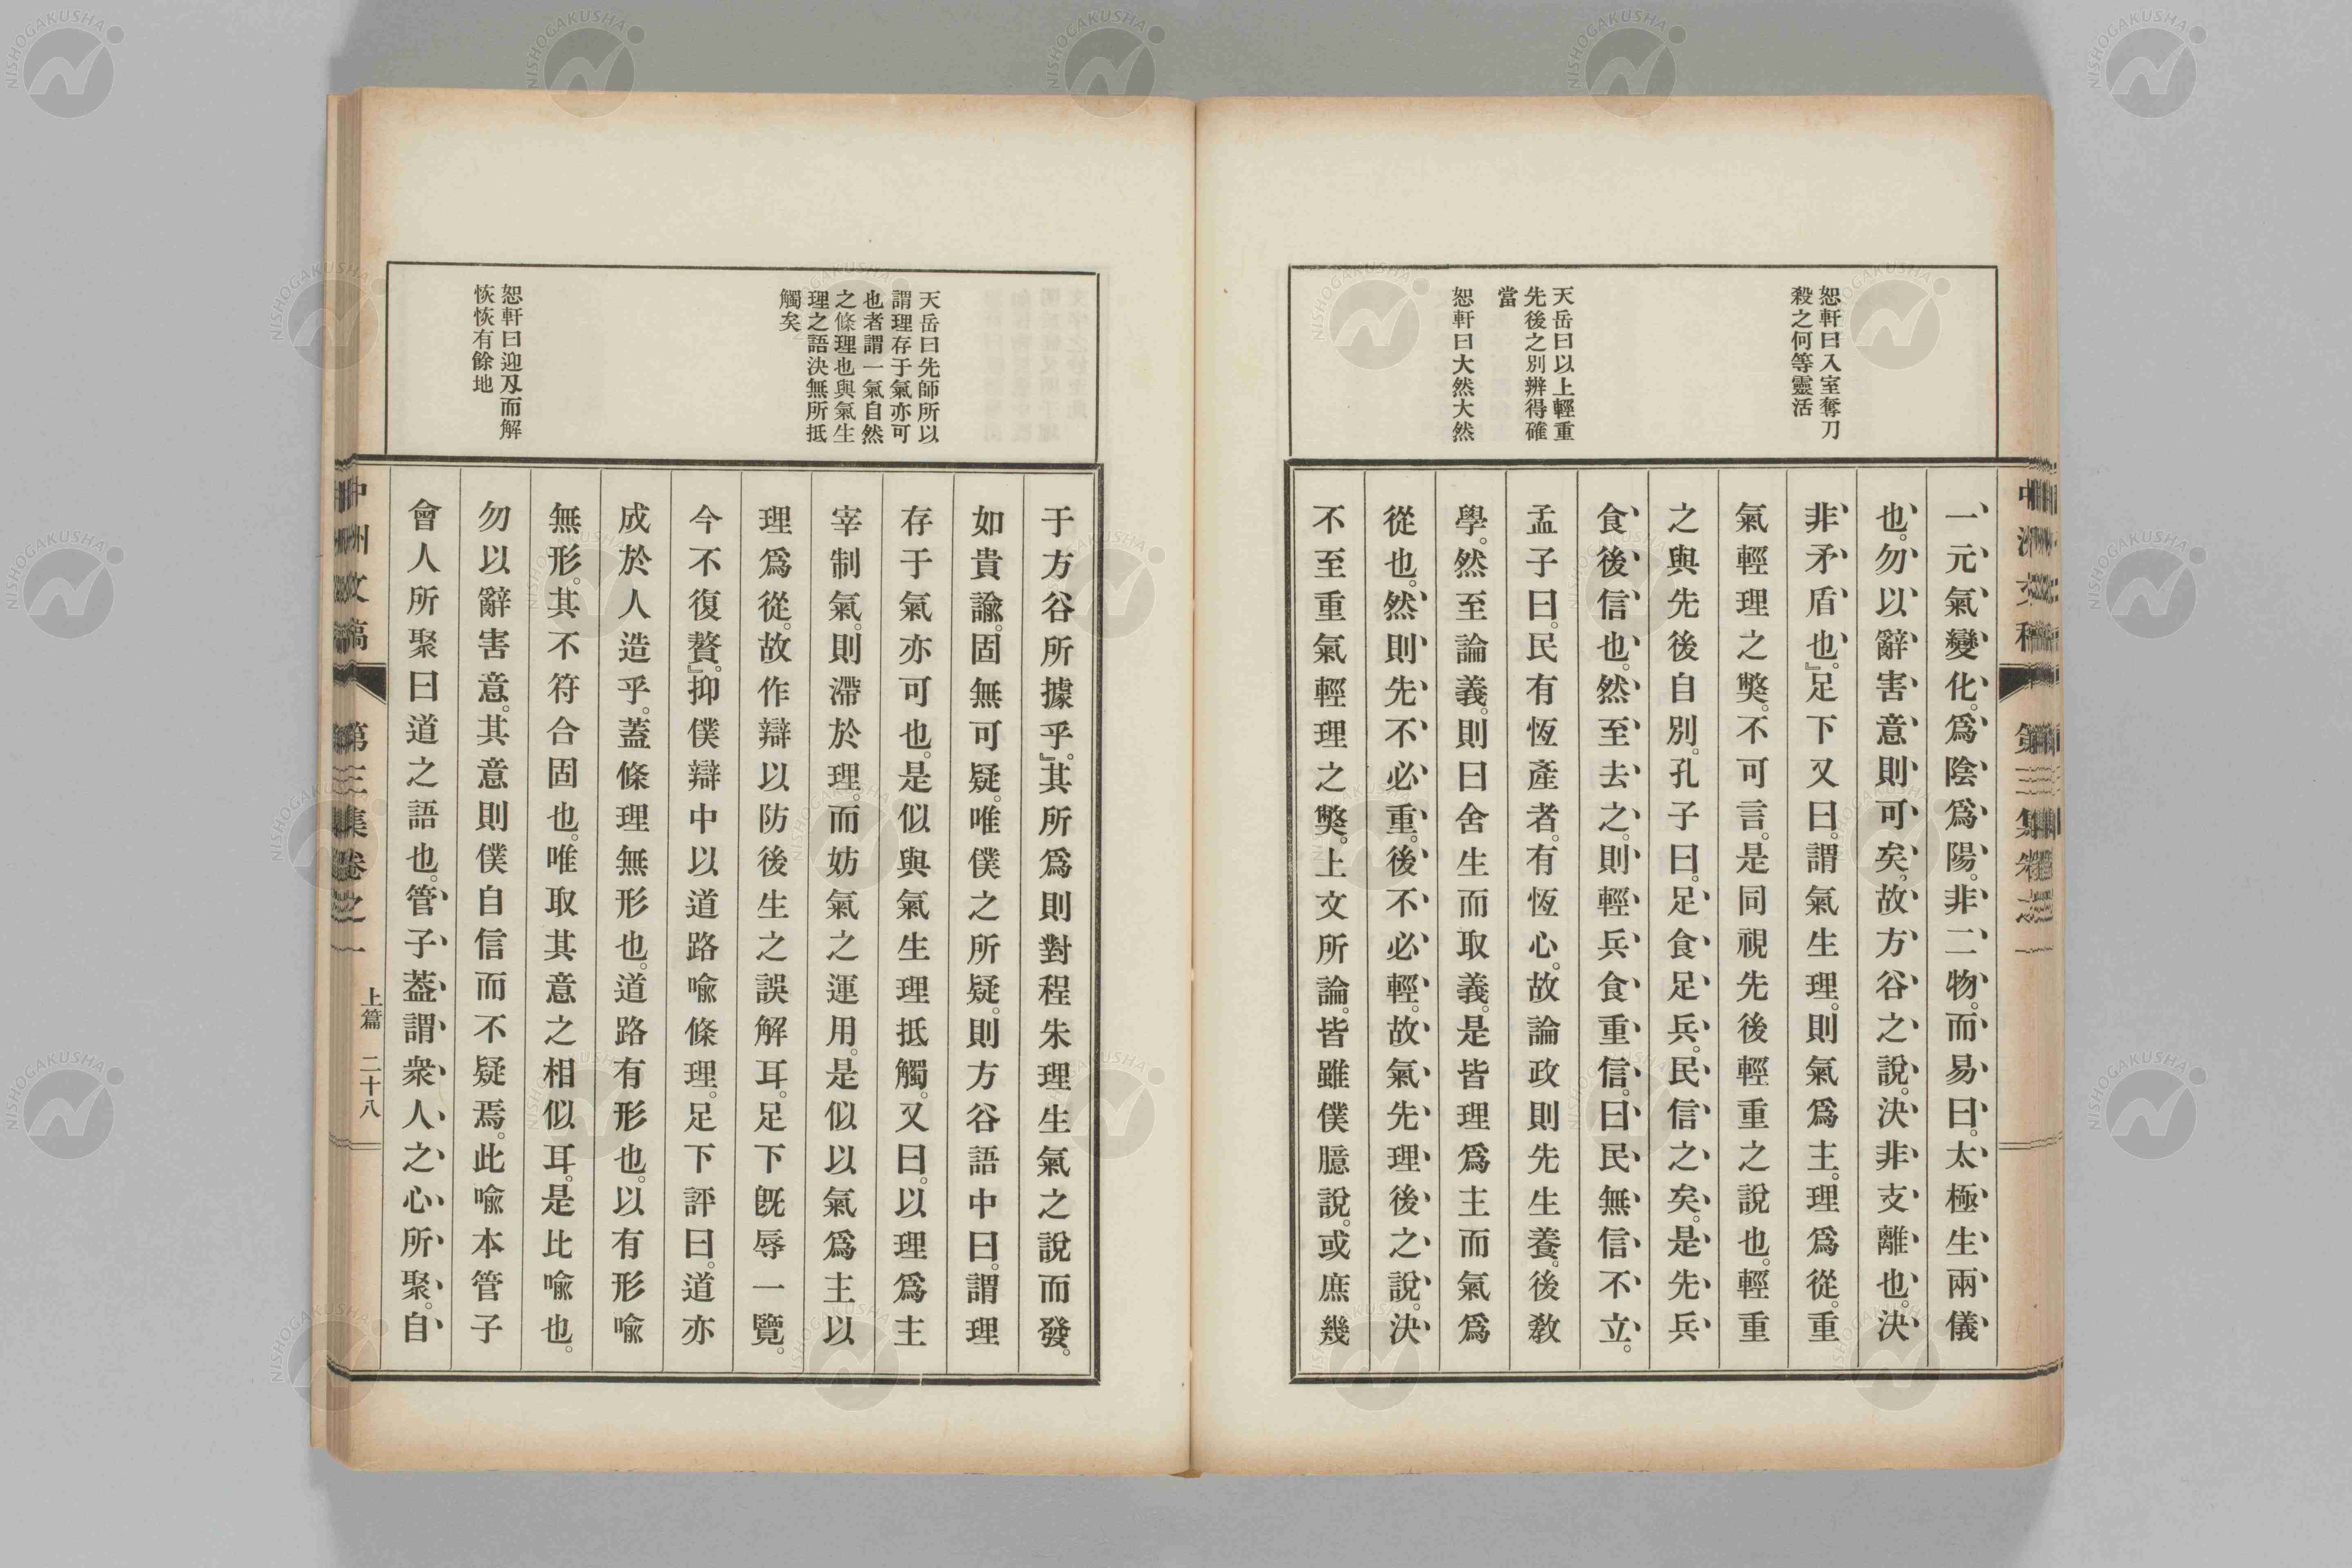 恕軒曰入室奪刀
殺之何等靈活
天岳曰以上輕重
先後之別辨得確
當
恕軒曰大然大然
一元氣變化。爲陰爲陽。非二物。而易曰。太極生兩儀
也。勿以辭害意則可矣。故方谷之說。決非支離也。決
非矛盾也。』足下又曰。謂氣生理。則氣爲主。理爲從。重
氣輕理之獘。不可言。是同視先後輕重之說也。輕重
之與先後自別。孔子曰。足食足兵。民信之矣。是先兵
食後信也。然至去之。則輕兵食重信。曰民無信不立。
孟子曰。民有恆產者。有恆心。故論政則先生養。後敎
學。然至論義。則曰舍生而取義。是皆理爲主而氣爲
從也。然則先不必重。後不必輕。故氣先理後之說。決
不至重氣輕理之獘。上文所論。皆雖僕臆說。或庶幾
天岳曰先師所以
謂理存于氣亦可
也者謂一氣自然
之條理也與氣生
理之語決無所抵
觸矣
恕軒曰迎刄而解
恢恢有餘地
于方谷所據乎。』其所爲則對程朱理生氣之說而發。
如貴諭。固無可疑。唯僕之所疑。則方谷語中曰。謂理
存于氣亦可也。是似與氣生理抵觸。又曰。以理爲主
宰制氣。則滯於理。而妨氣之運用。是似以氣爲主以
理爲從。故作辯以防後生之誤解耳。足下旣辱一覽。
今不復贅。』抑僕辯中以道路喩條理。足下評曰。道亦
成於人造乎。蓋條理無形也。道路有形也。以有形喩
無形。其不符合固也。唯取其意之相似耳。是比喩也。
勿以辭害意。其意則僕自信而不疑焉。此喩本管子
會人所聚曰道之語也。管子蓋謂衆人之心所聚。自
中洲文稿
第三集卷之一
上篇
二十八